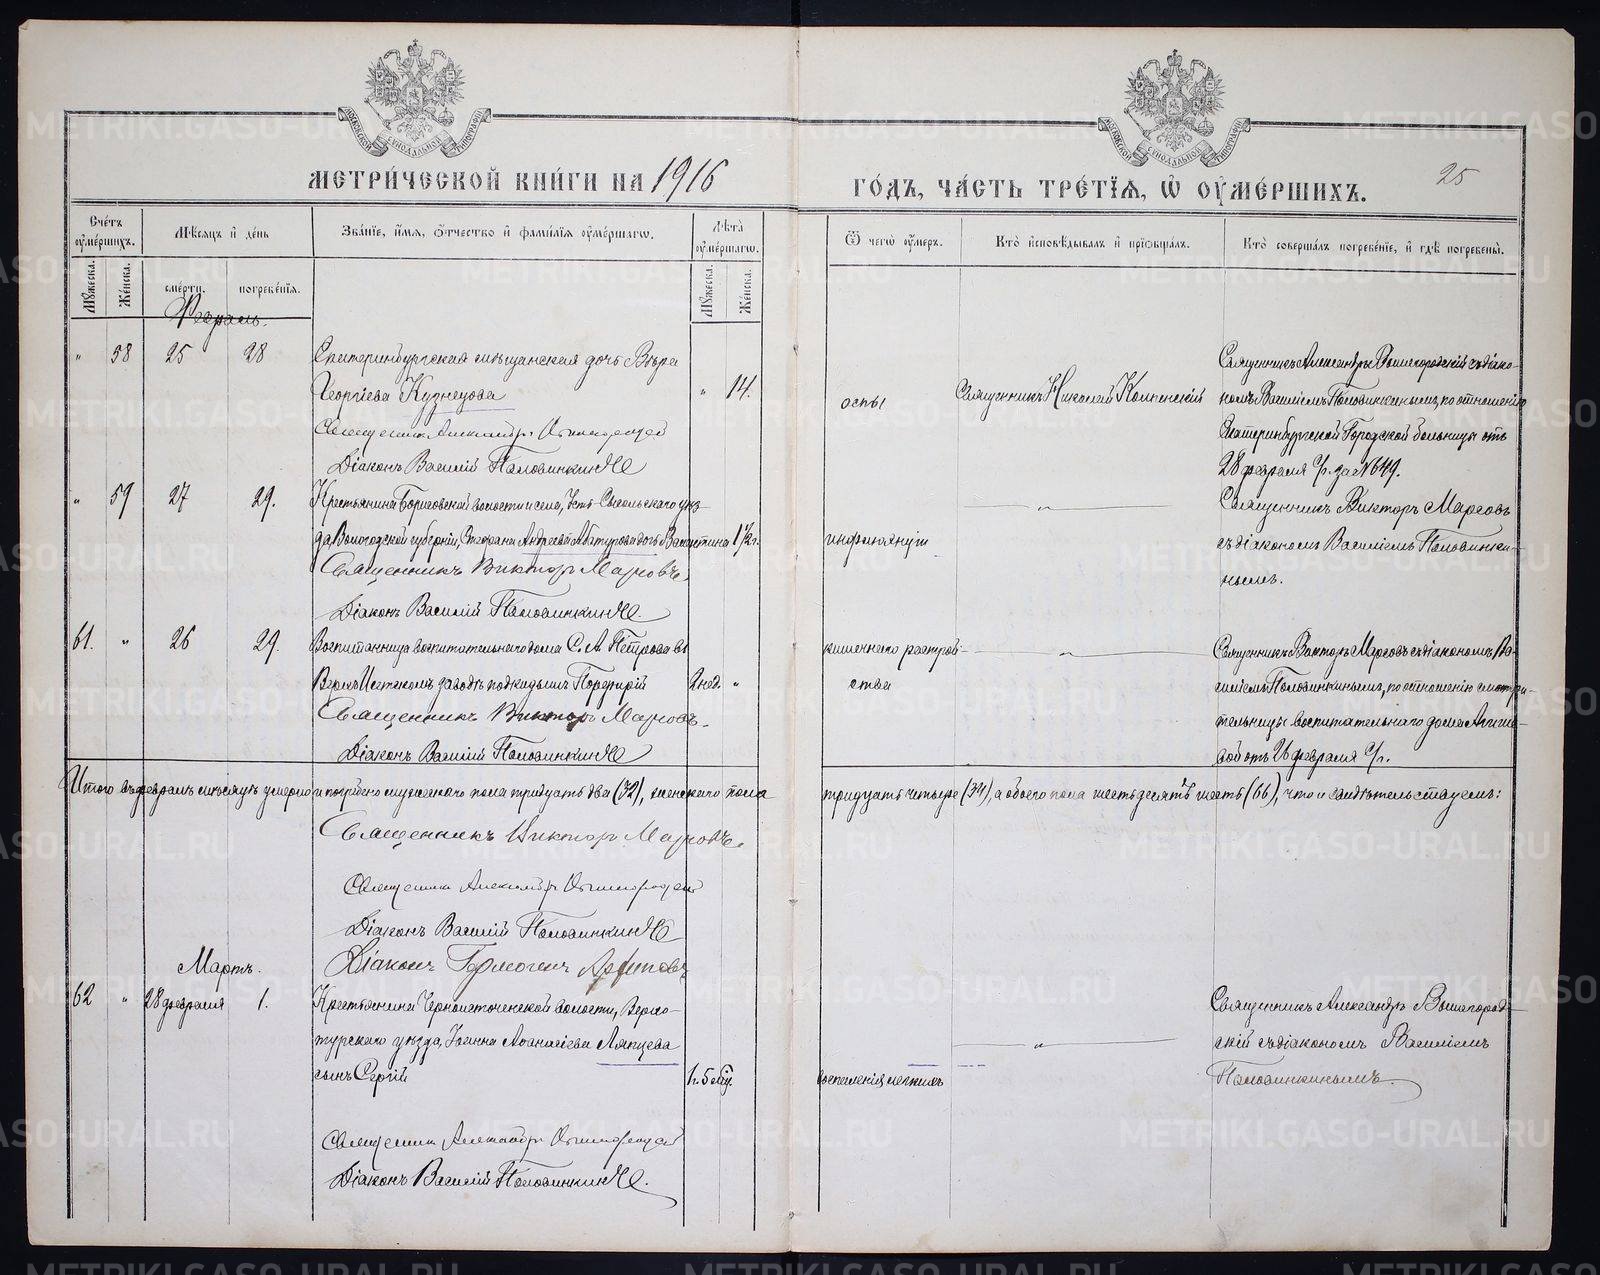 МЕТРИ́ЧЕСКОЙ КНИ́ГИ НА 1916
ГО́ДЪ, ЧА́СТЬ ТРЕ́ТЇѦ, Ѡ҆ ОУ҆МЕ́РШИХЪ.
25
МОСКОВСКОЙ СѴНОДАЛЬНОЙ ТИПОГРАФІИ
МОСКОВСКОЙ СѴНОДАЛЬНОЙ ТИПОГРАФІИ
Сче́тъ оу҆ме́ршихъ.
Мѣ́сяцъ и҆ де́нь
Зва́нїе, и҆́мя, ѻ҆́тчество и҆ фами́лїя оу҆ме́ршагѡ.
Лѣ́та оу҆ме́ршагѡ.
Ѿ чегѡ̀ оу҆́меръ.
Кто̀ и҆сповѣ́дывалъ и҆ прїѡбща́лъ.
Кто̀ соверша́лъ погребе́нїе, и҆ гдѣ̀ погребены̀.
Мꙋ́жеска.
Же́нска.
сме́рти.
погребе́нїя.
Мꙋ́жеска.
Же́нска.
Февраль.
" 58 25 28 Екатеринбургская мѣщанская дочь Вѣра
Георгіева Кузнецова " 14.
Священникъ Александръ Вышегородскій
Діаконъ Василій Половинкинъ
оспы
Священникъ Николай
Священникъ Александръ Вышегородскій съ діако-
номъ Василіемъ Половинкинымъ, по отношенію
Екатеринбургской Городской больницы отъ
28 февраля с/г. за № 649.
" 59 27 29. Крестьянина Борисовской волости и села, Усть-Сысольскаго уѣз-
да, Вологодской губерніи, Стефана Андреева Абатурова дочь Валентина 1 1/2 г.
Священникъ Викторъ Маровъ.
Діаконъ Василій Половинкинъ.
"
Священникъ Викторъ Маровъ
съ діакономъ Василіемъ Половинки-
нымъ.
61. " 26 29. Воспитанница воспитательнаго дома С. А. Петрова въ
Верхъ-Исетскомъ заводѣ подкидышъ Порфирій 2 нед. "
Священникъ Викторъ Маровъ.
Діаконъ Василій Половинкинъ
кишечнаго разстрой-
ства
"
Священникъ Викторъ Маровъ съ діакономъ Ва-
силіемъ Половинкинымъ, по отношенію смотри-
тельницы воспитательнаго дома
отъ 26 февраля с/г.
Итого въ февралѣ мѣсяцѣ умерло и погребено мужескаго пола тридцать два (32), женскаго пола
тридцать четыре (34), а обоего пола шестьдесятъ шесть (66), что и свидѣтельствуемъ:
Священникъ Викторъ Маровъ.
Священникъ Александръ Вышегородскій
Діаконъ Василій Половинкинъ
Діаконъ Гермогенъ
Мартъ.
62 " 28 февраля 1. Крестьянина Черноисточенской волости, Верхо-
турскаго уѣзда, Іоанна Аѳанасіева Ляпцева
сынъ Сергій 1 г. 5 мѣс.
Священникъ Александръ Вышегородскій
Діаконъ Василій Половинкинъ.
воспаленія легкихъ
"
Священникъ Александръ Вышегород-
скій съ діакономъ Василіемъ
Половинкинымъ.
METRIKI.GASO-URAL.RU